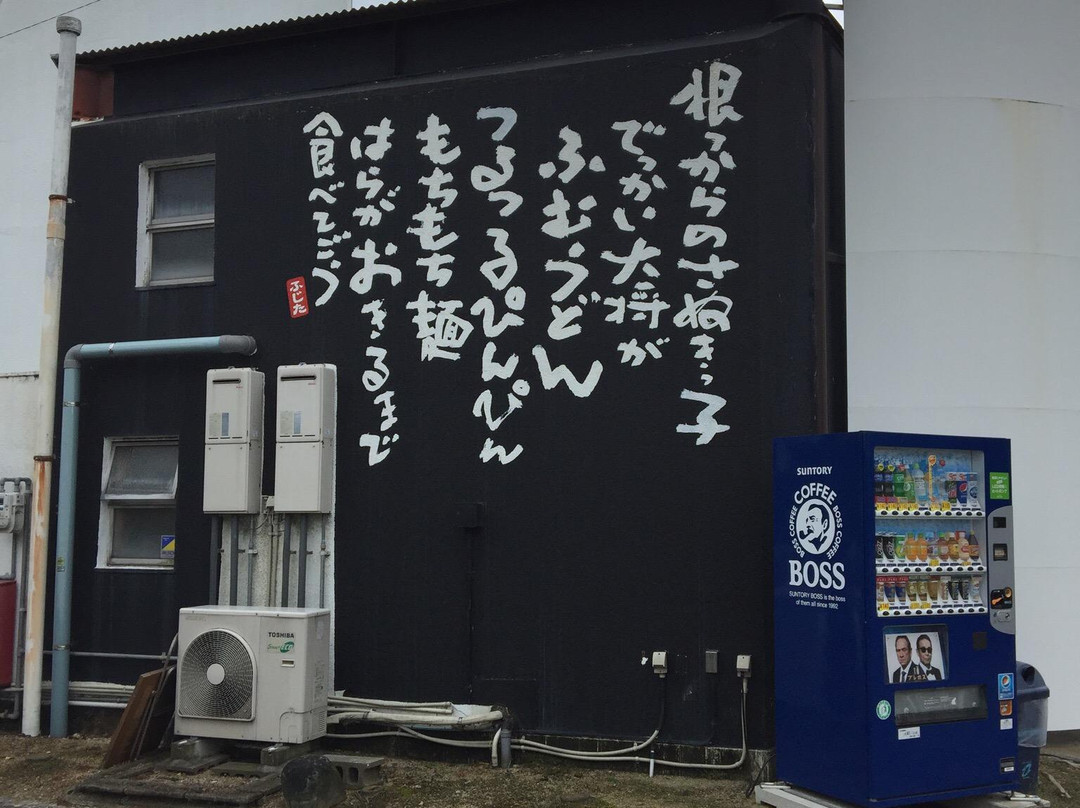 根っからのさぬきっ子
でっかい大将が
ふむうどん
つるっつるぴんぴん
もちもち麺
はらがおきるまで
食べてごう
ふじた
SUNTORY
COFFEE
BOSS COFFEE
BOSS COFFEE
BOSS
SUNTORY BOSS is the boss
of them all since 1992
プレボス
TOSHIBA